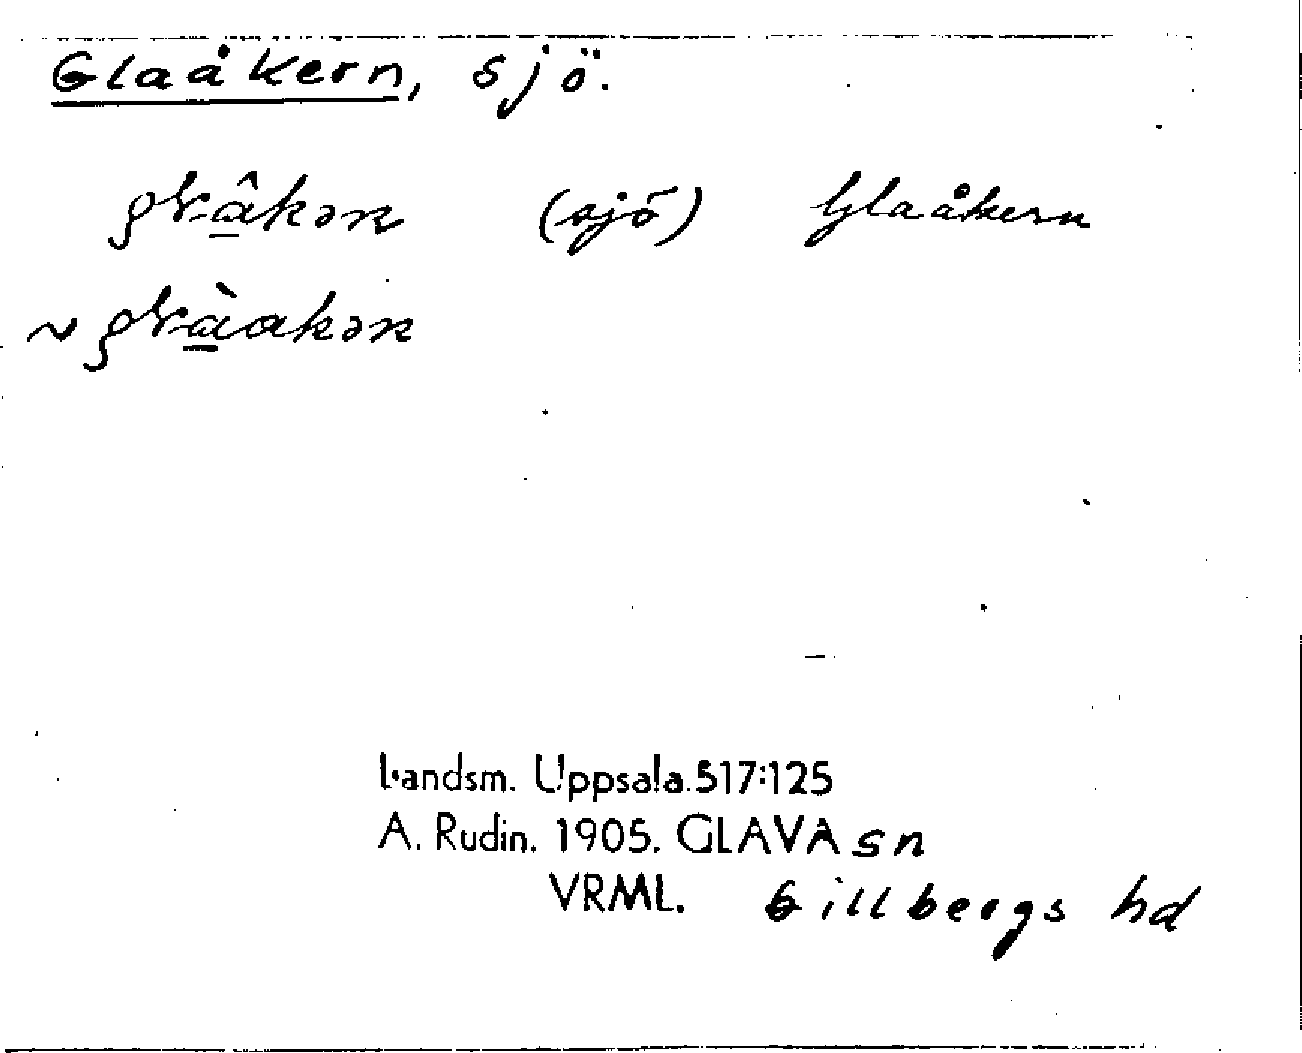 Glaåkern, sjö.
(sjö) Glaåkern
~
Landsm. Uppsala.517:125
A. Rudin. 1905. GLAVA sn
VRML. Gillbergs hd